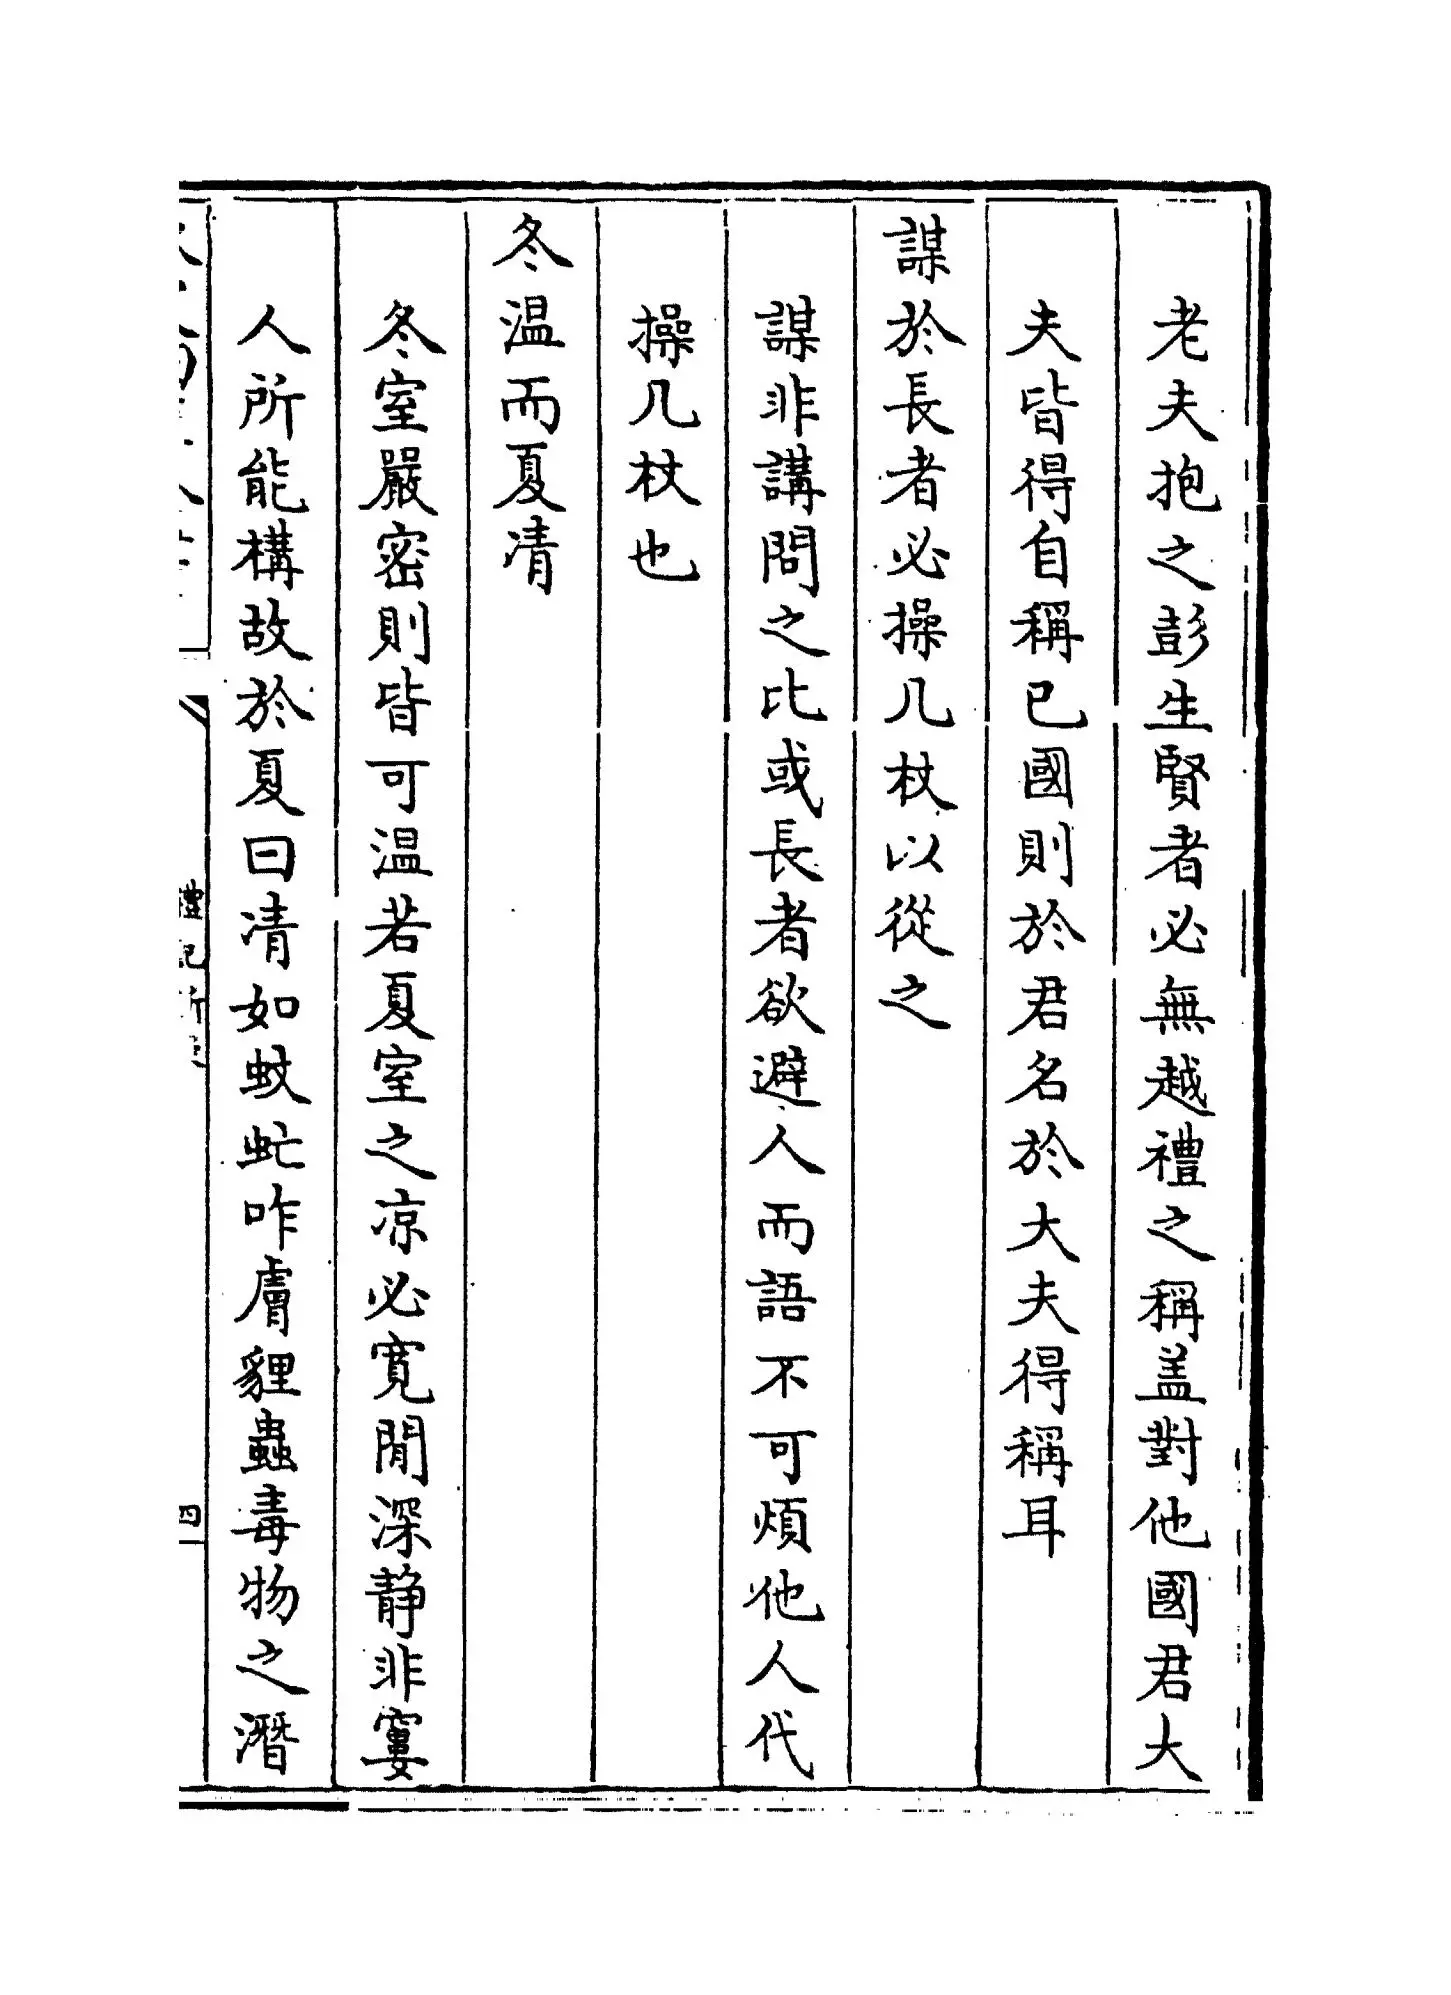 老夫抱之彭生賢者必無越禮之稱盖對他國君大
夫皆得自稱已國則於君名於大夫得稱耳
謀於長者必操几杖以從之
謀非講問之比或長者欲避人而語不可煩他人代
操几杖也
冬温而夏凊
冬室嚴密則皆可温若夏室之凉必寛閒深静非窶
人所能構故於夏曰凊如蚊虻咋膚貍蟲毒物之潛
禮記析疑
四